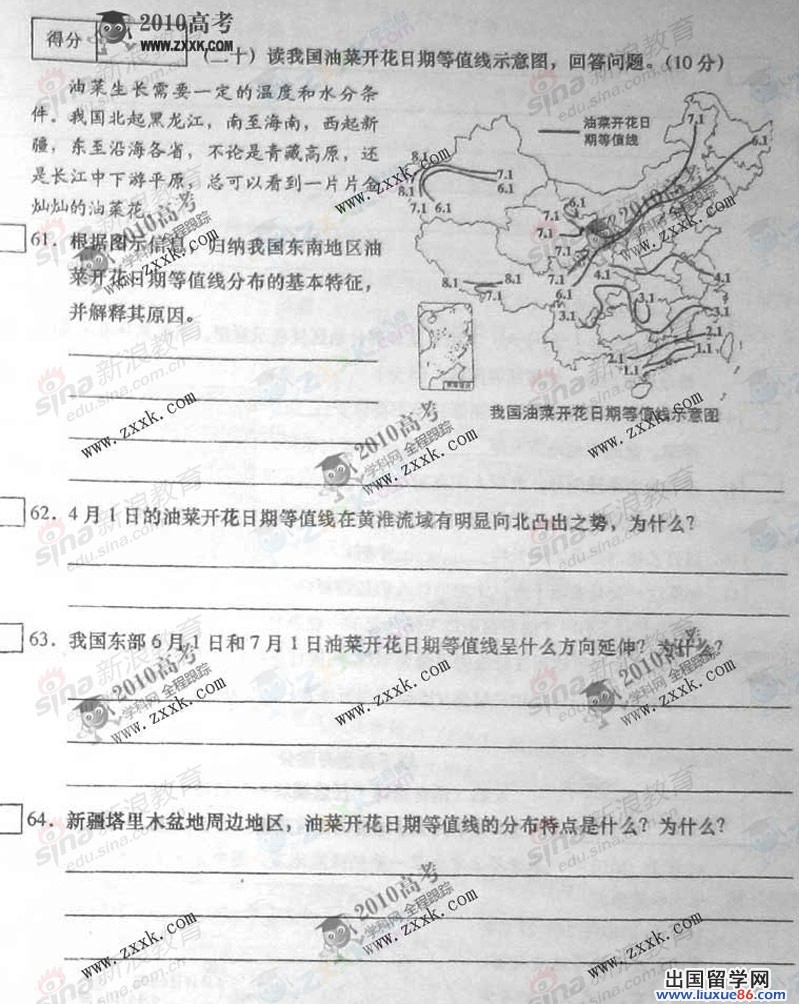 2010高考
www.zxxk.com
得分
（二十）读我国油菜开花日期等值线示意图，回答问题。(10分)
油菜生长需要一定的温度和水分条
件。我国北起黑龙江，南至海南，西起新
疆，东至沿海各省，不论是青藏高原，还
是长江中下游平原，总可以看到一片片金
灿灿的油菜花。
61．根据图示信息，归纳我国东南地区油
菜开花日期等值线分布的基本特征，
并解释其原因。
油菜开花日
期等值线
7.1
6.1
8.1
7.1
8.1
6.1
7.1 6.1
7.1
6.1
7.1
8.1
8.1
7.1
7.1
6.1
4.1
4.1
3.1
3.1
2.1
2.1
1.1
1.1
我国油菜开花日期等值线示意图
62．4月1日的油菜开花日期等值线在黄淮流域有明显向北凸出之势，为什么？
63．我国东部6月1日和7月1日油菜开花日期等值线呈什么方向延伸？为什么？
64．新疆塔里木盆地周边地区，油菜开花日期等值线的分布特点是什么？为什么？
sina新浪教育
edu.sina.com.cn
2010高考
学科网 全程跟踪
www.zxxk.com
出国留学网
www.liuxue86.com